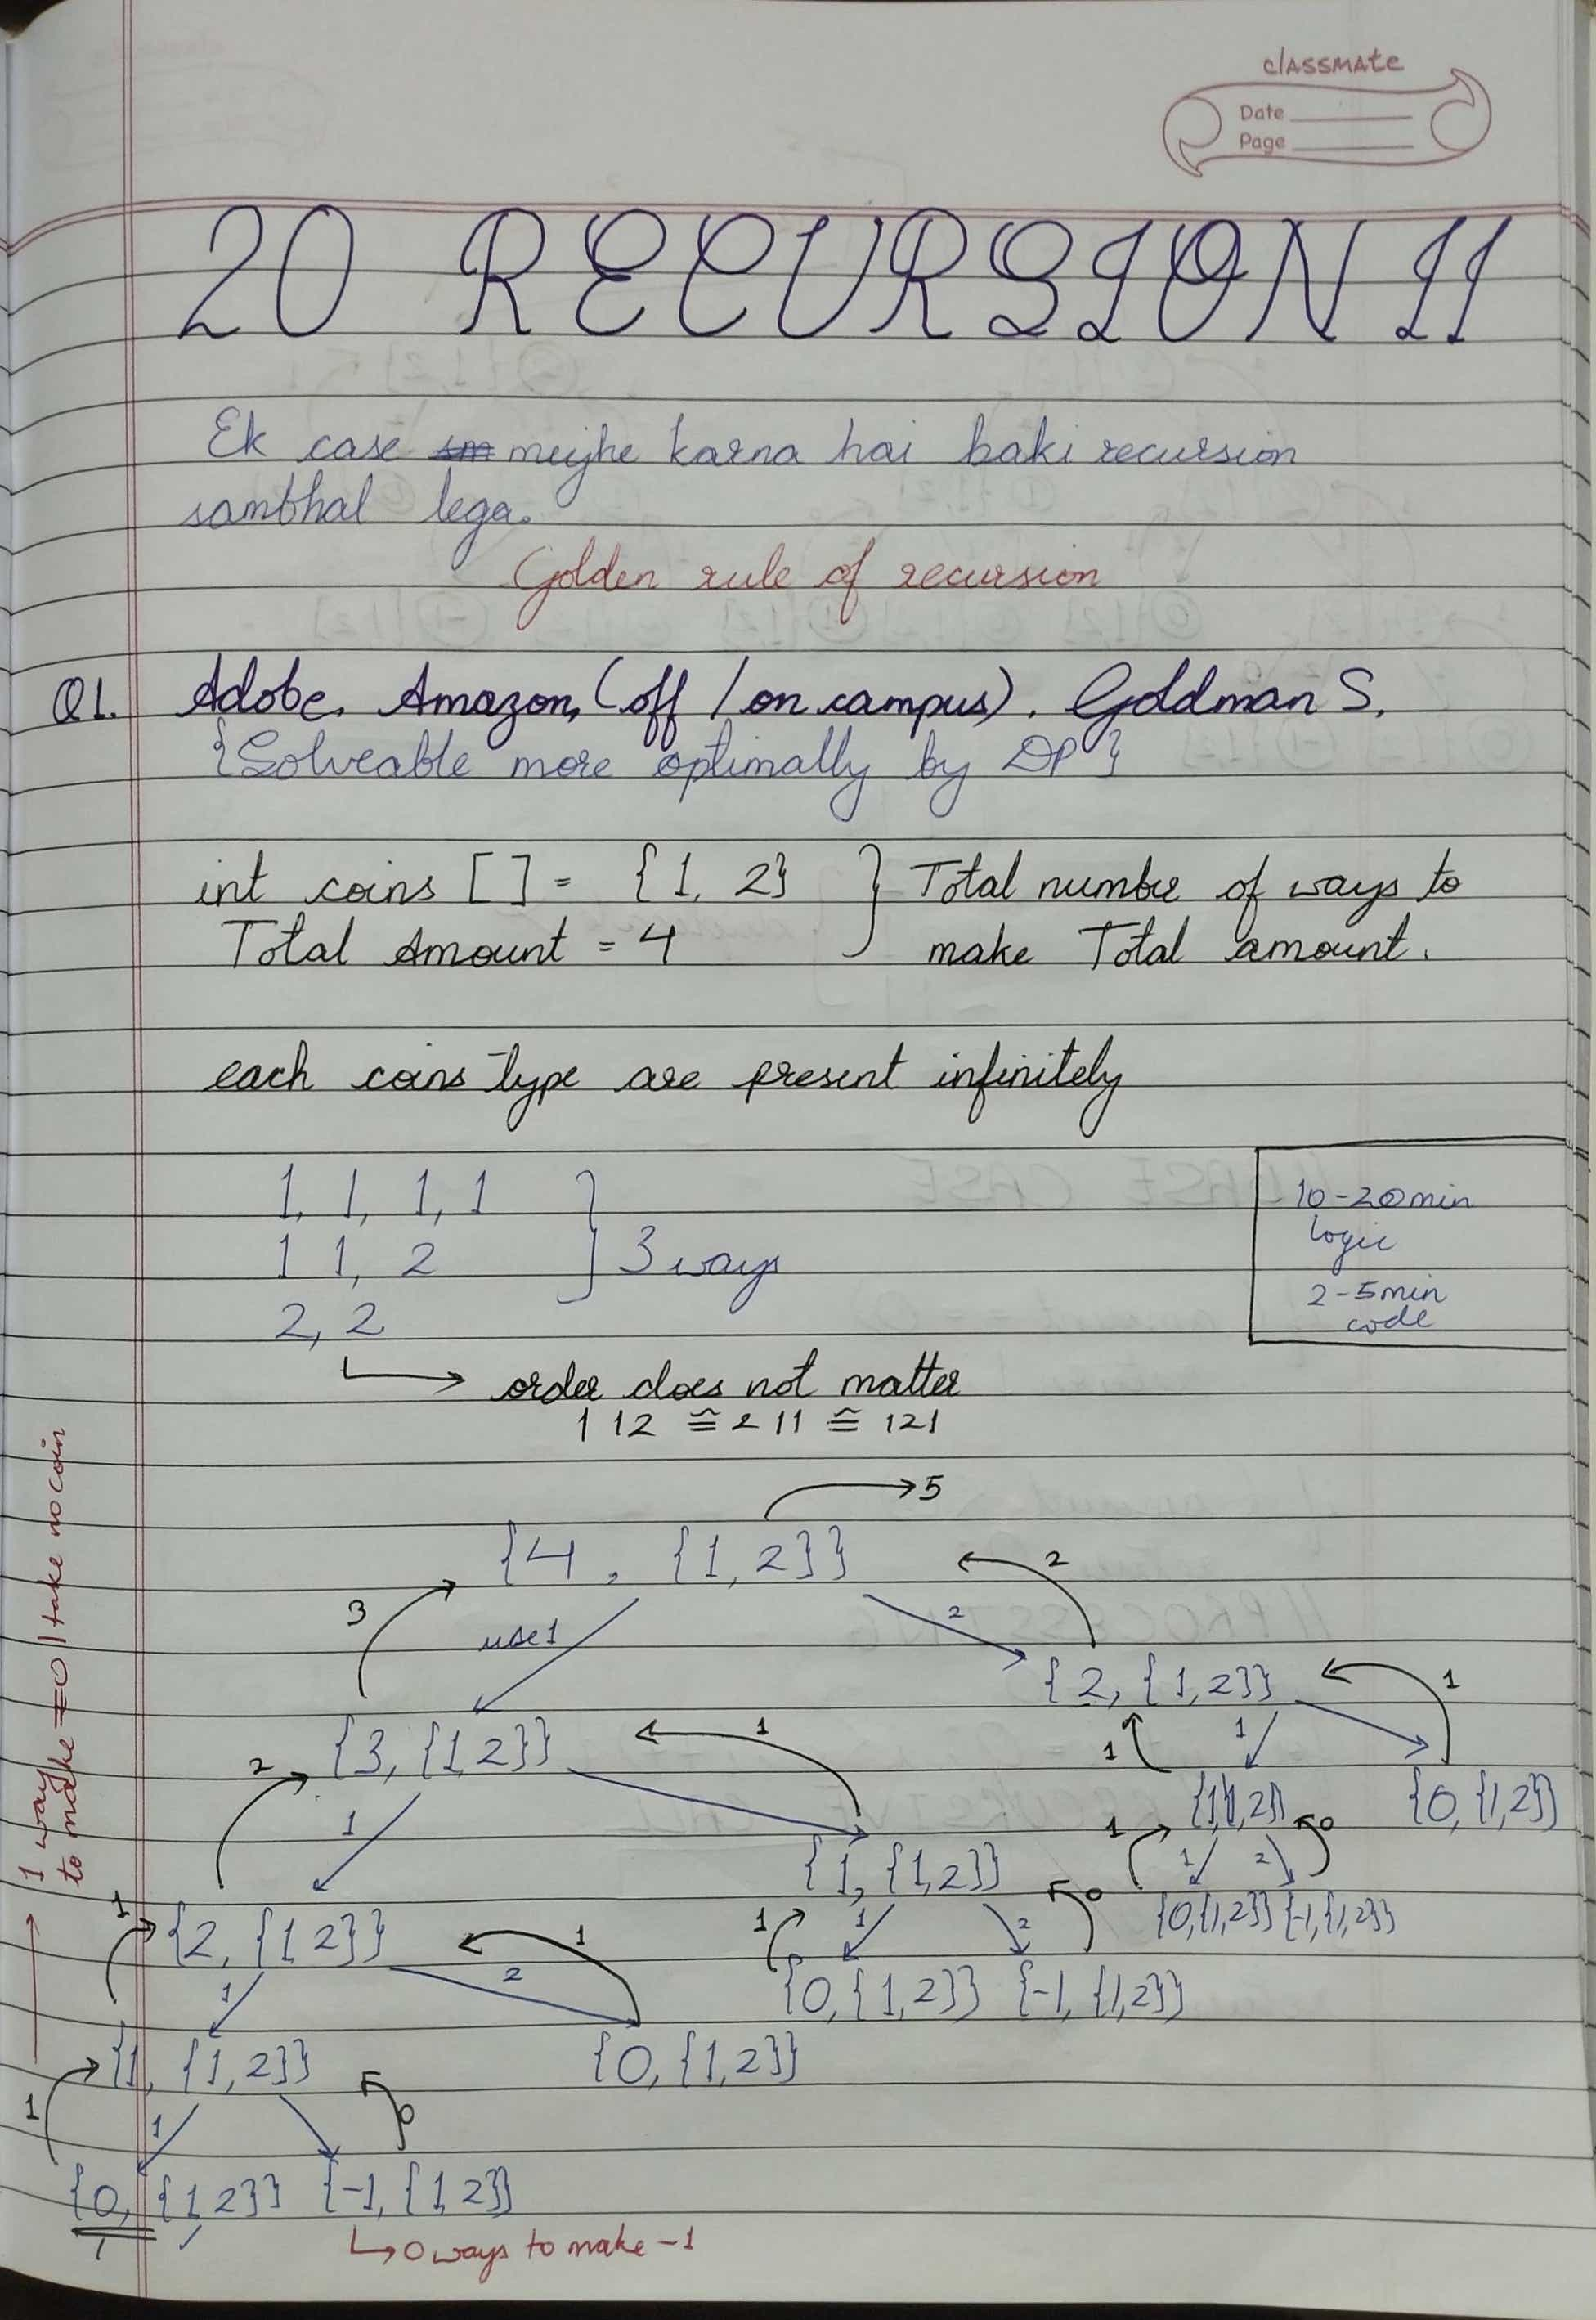 classmate
Date
Page
20 RECURSION II
Ek case mujhe karna hai baki recursion
sambhal lega.
Golden rule of recursion
Q1. Adobe, Amazon, (off / on campus), Goldman S.
{Solveable more optimally by DP}
int coins [ ] = {1, 2} } Total number of ways to
Total Amount = 4 make Total amount.
each coins type are present infinitely
1, 1, 1, 1
1 1, 2 } 3 ways
2, 2
10-20min
logic
2-5min
code
order does not matter
112 ≅ 211 ≅ 121
5
{4, {1,2}}
3 use1 2 2
{2, {1,2}} 1
{3, {1,2}} 1 1 1
2 1 {1,{1,2}} {0,{1,2}}
{1, {1,2}} 1 1 2 0
{2, {1 2}} 1 1 2 0 {0,{1,2}} {-1,{1,2}}
1 1 2 1 {0,{1,2}} {-1, {1,2}}
{1, {1,2}} {0, {1,2}}
1 1 0
{0, {1,2}} {-1, {1,2}}
1
0 ways to make -1
1 way
to make 0 / take no coin